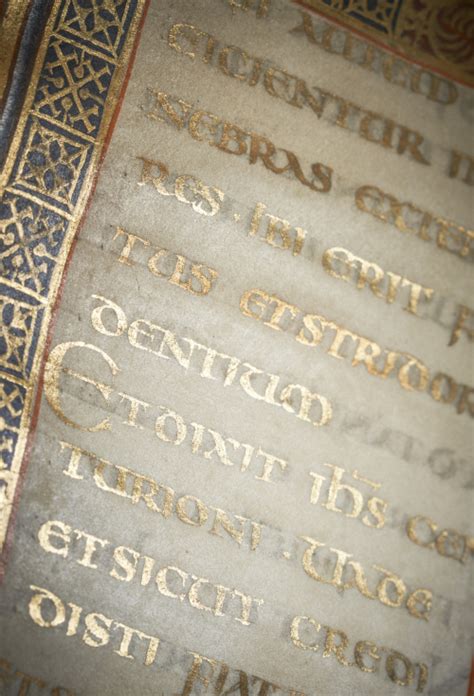 AUTEM
EICIENTUR IN
NEBRAS EXTER
RES · IBI ERIT F
TUS ET STRIDOR
DENTIUM
ET DIXIT ih̅s CEN
TURIONI · UADE
ET SICUT CREDI
DISTI FIAT